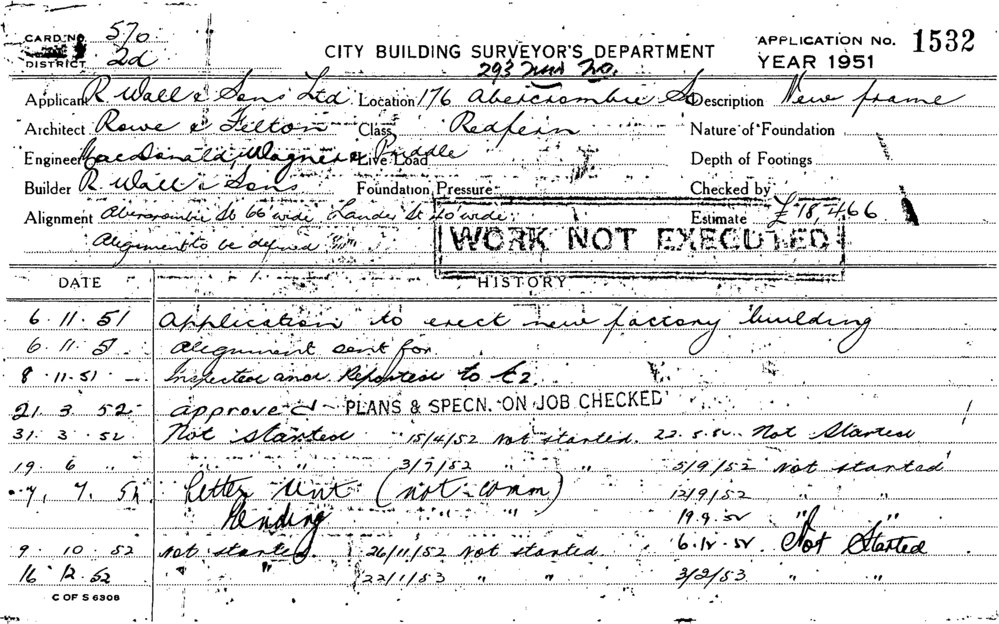 CARD No. 570
DISTRICT 2d
CITY BUILDING SURVEYOR'S DEPARTMENT
APPLICATION No. 1532
YEAR 1951
293 New No.
Applicant R Wall & Sons Ltd Location 176 Abercrombie St Description New frame
Architect Rowe & Felton Class Redfern Nature of Foundation
Engineer MacDonald Wagner & Priddle Live Load Depth of Footings
Builder R. Wall & Sons Foundation Pressure Checked by
Alignment Abercrombie St 66 wide Lander St 40 wide Estimate £18,466
Alignment to be defined
WORK NOT EXECUTED
DATE HISTORY
6.11.51 Application to erect new factory building
6.11.51 Alignment sent for
8.11.51 Inspected and Reported to
21.3.52 Approved PLANS & SPECN. ON JOB CHECKED
31.3.52 Not started 15/4/52 Not started. 22.5.52 Not Started
19 6 " " " 3/7/52 " " 5/9/52 Not started
7. 7. 52 Letter (not comm) 12/9/52 " "
Pending " " 19.9.52 "
9.10.52 Not started. 26/11/52 Not started. 6.12.52. Not Started
16.12.52 " " 22/1/53 " " 3/2/53 " "
C OF S 6308